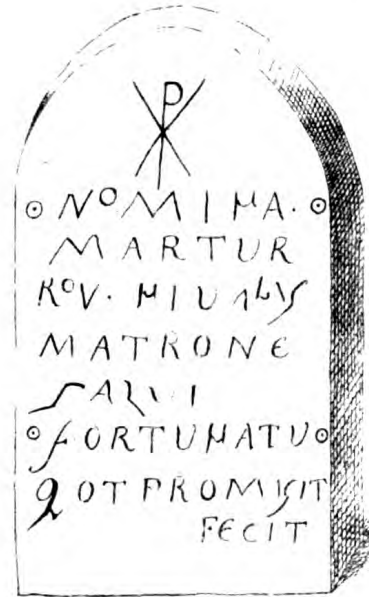 ☧
NOMINA·
MARTUR
ROV· NIVALIS
MATRONE
SALVI
FORTUNATU
QOT PROMISIT
FECIT